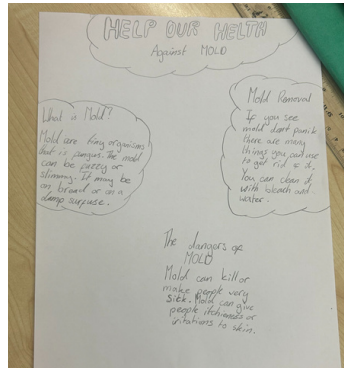 HELP OUR HELTH
Against MOLD
What is Mold?
Mold are tiny organisms
that is fungus. The mold
can be fuzzy or
slimmy. It may be
on bread or on a
damp surfuse.
Mold Removal
If you see
mold dont panik
there are many
things you can use
to get rid of it,
You can clean it
with bleach and
water.
The dangers of
MOLD
Mold can kill or
make people very
Sick. Mold can give
people itchieness or
iritations to skin.